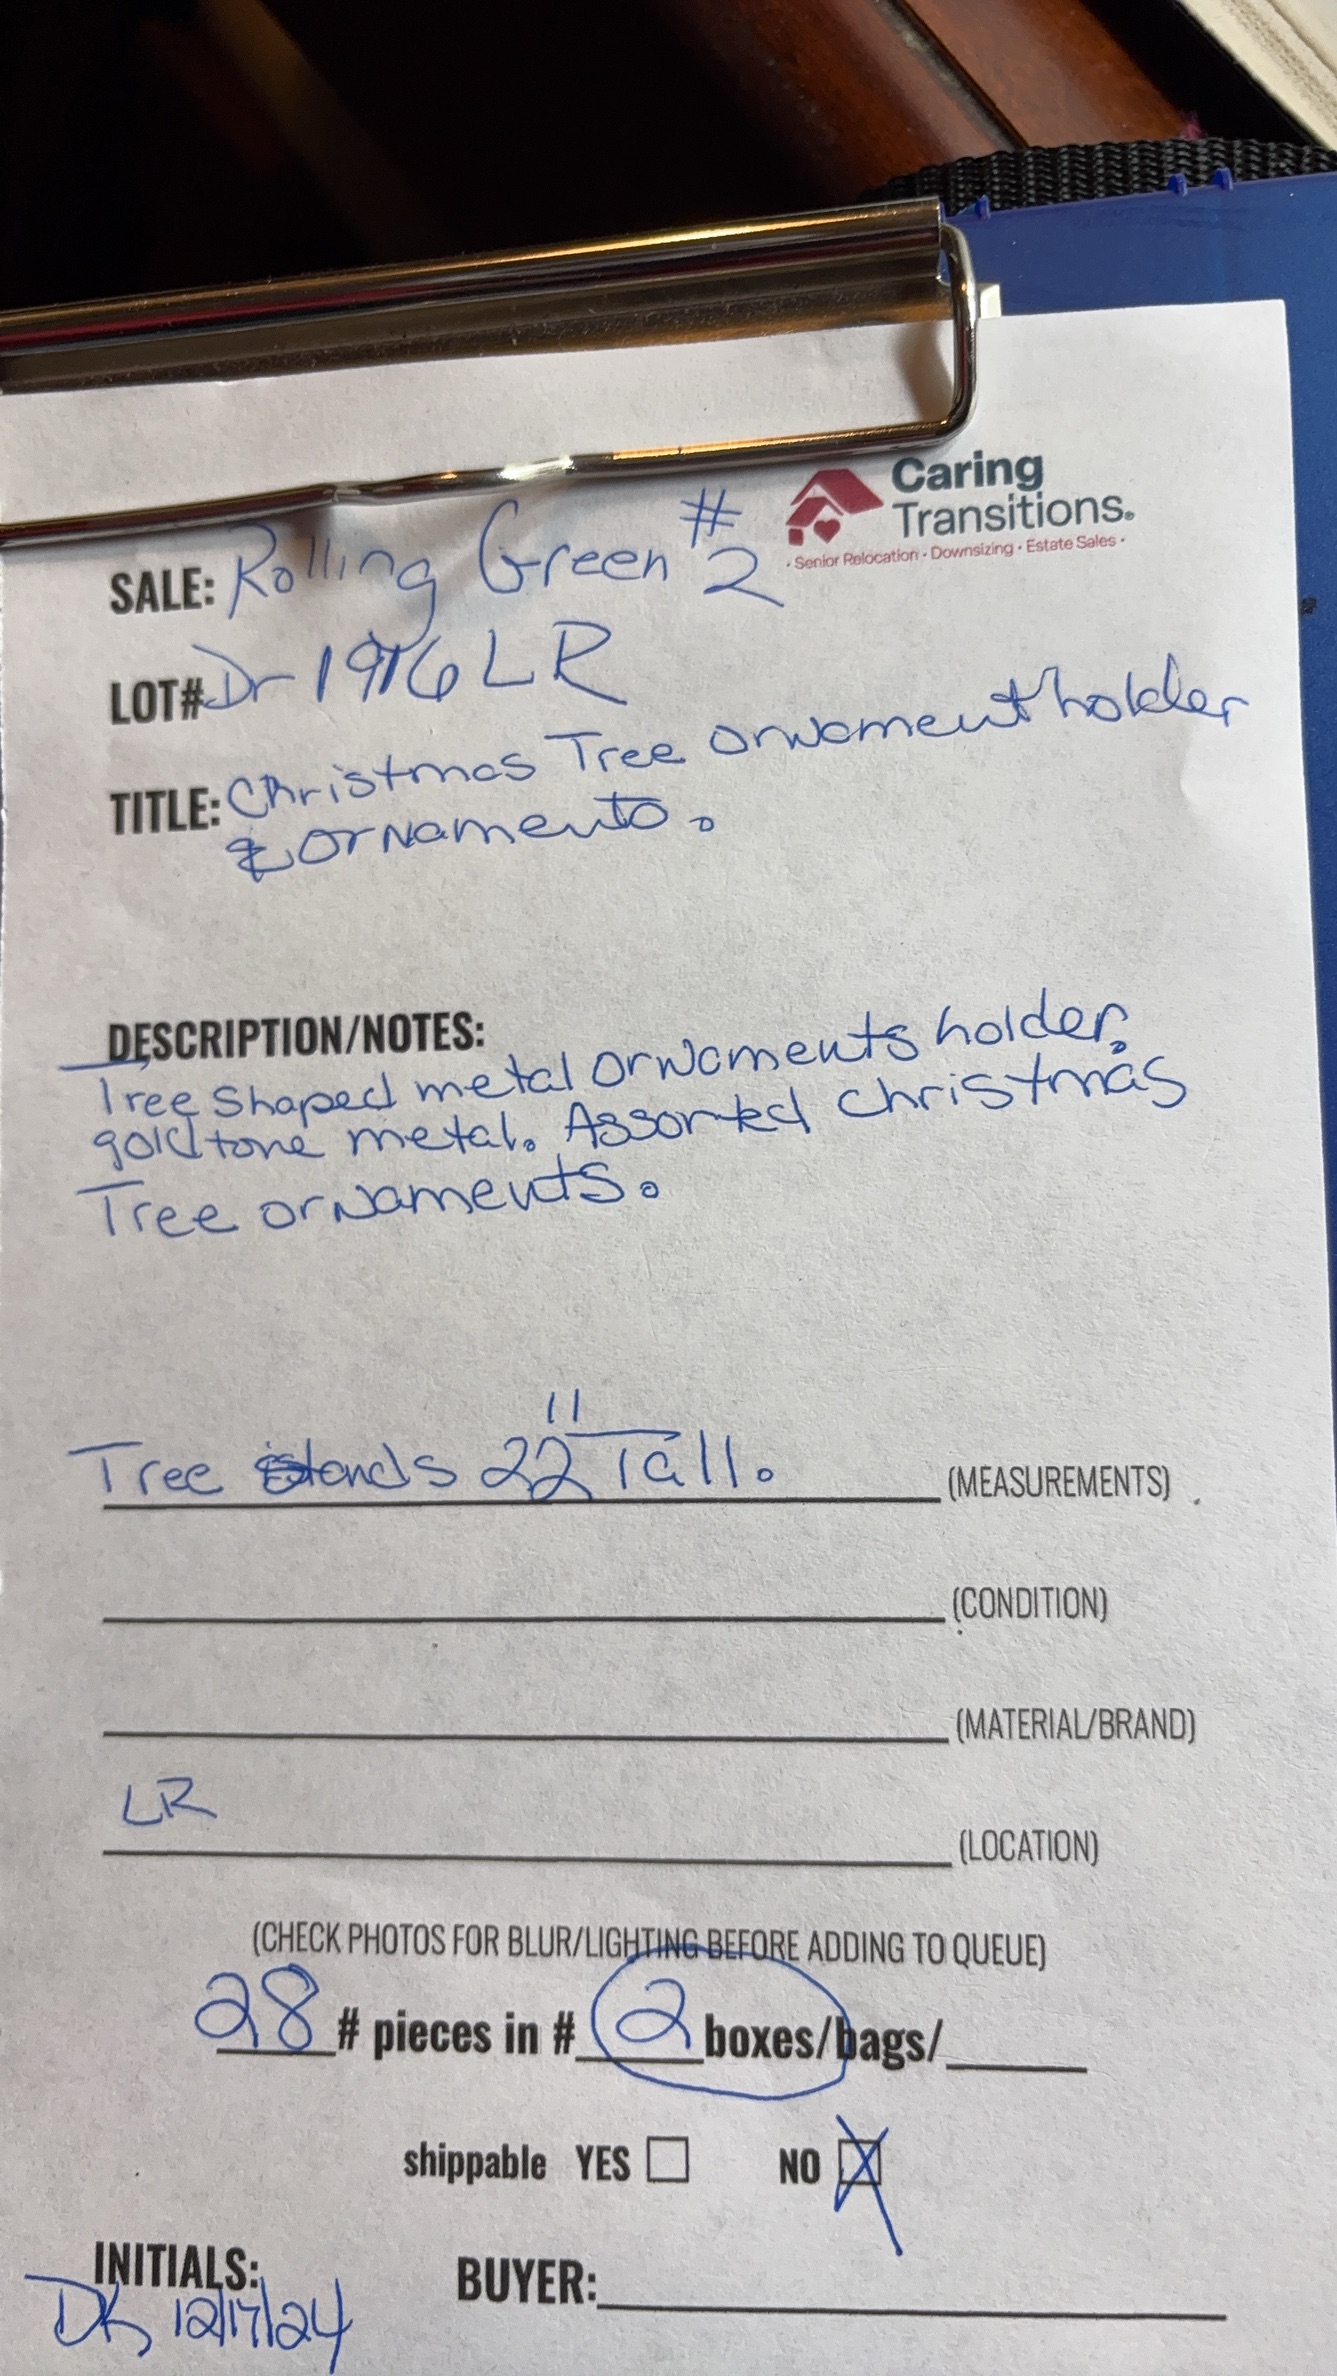 Caring
Transitions®
• Senior Relocation • Downsizing • Estate Sales •
SALE: Rolling Green #2
LOT# Dr 1916 LR
TITLE: Christmas Tree ornament holder
& ornaments.
DESCRIPTION/NOTES:
Tree shaped metal ornaments holder.
goldtone metal. Assorted christmas
Tree ornaments.
Tree stands 22" Tall. (MEASUREMENTS)
(CONDITION)
(MATERIAL/BRAND)
LR (LOCATION)
(CHECK PHOTOS FOR BLUR/LIGHTING BEFORE ADDING TO QUEUE)
28 # pieces in # 2 boxes/bags/
shippable YES NO
INITIALS: BUYER:
DK 12/17/24